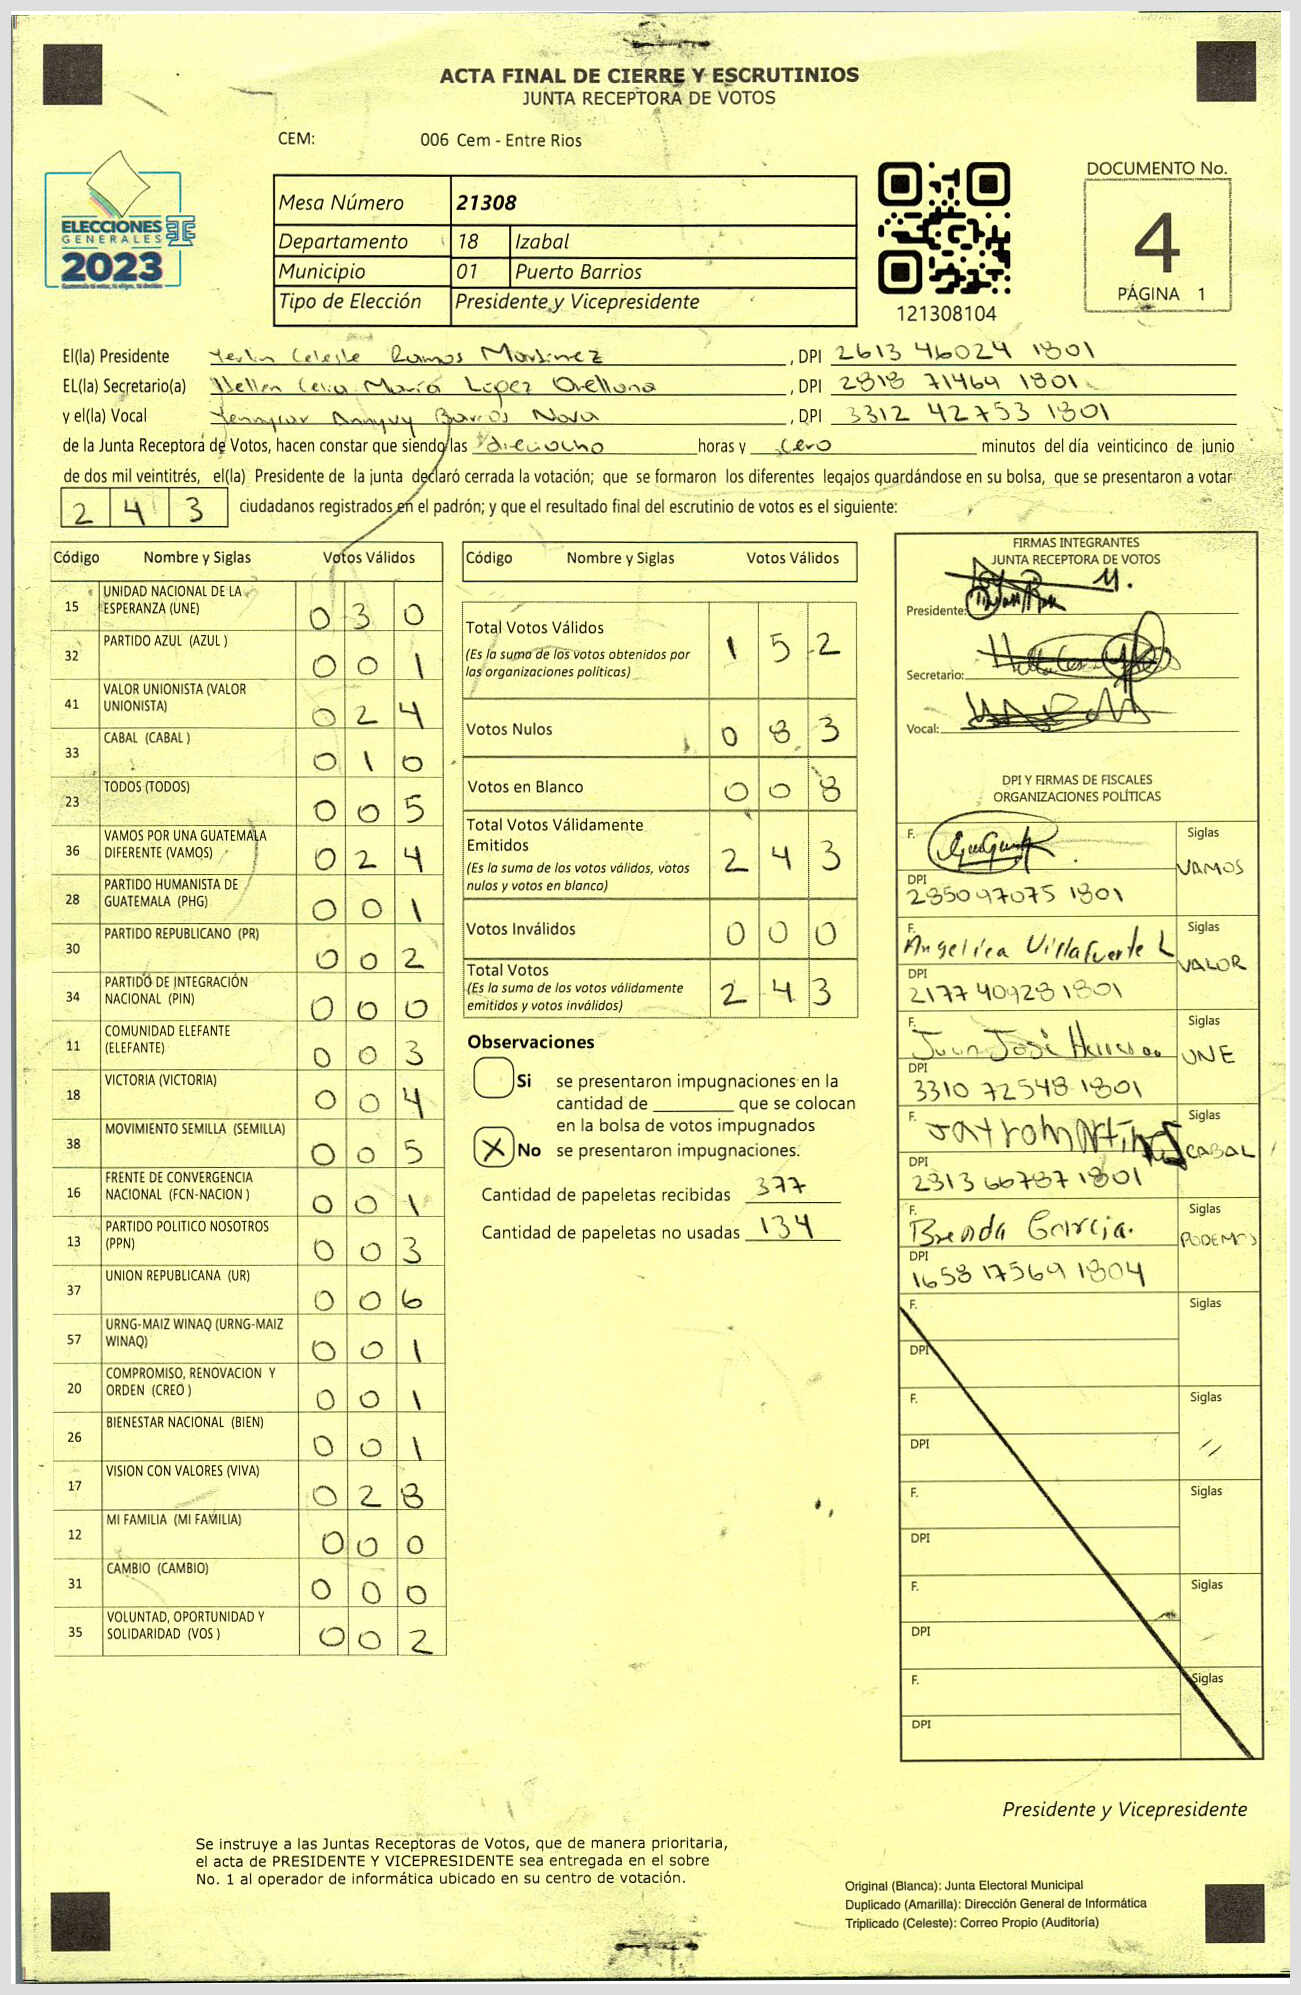 ACTA FINAL DE CIERRE Y ESCRUTINIOS
JUNTA RECEPTORA DE VOTOS
CEM: 006 Cem - Entre Rios
ELECCIONES
GENERALES
2023
Guatemala tú votas, tú eliges, tú decides
Mesa Número 21308
Departamento 18 Izabal
Municipio 01 Puerto Barrios
Tipo de Elección Presidente y Vicepresidente
121308104
DOCUMENTO No.
4
PÁGINA 1
El(la) Presidente Yerlin Celeste Ramos Martinez, DPI 2613 46024 1801
EL(la) Secretario(a) Hellen Celia María López Orellana, DPI 2818 71469 1801
y el(la) Vocal Barrios Nova, DPI 3312 42753 1801
de la Junta Receptora de Votos, hacen constar que siendo las dieciocho horas y cero minutos del día veinticinco de junio
de dos mil veintitrés, el(la) Presidente de la junta declaró cerrada la votación; que se formaron los diferentes legajos guardándose en su bolsa, que se presentaron a votar
2 4 3 ciudadanos registrados en el padrón; y que el resultado final del escrutinio de votos es el siguiente:
Código Nombre y Siglas Votos Válidos
15 UNIDAD NACIONAL DE LA ESPERANZA (UNE) 0 3 0
32 PARTIDO AZUL (AZUL ) 0 0 1
41 VALOR UNIONISTA (VALOR UNIONISTA) 0 2 4
33 CABAL (CABAL ) 0 1 0
23 TODOS (TODOS) 0 0 5
36 VAMOS POR UNA GUATEMALA DIFERENTE (VAMOS) 0 2 4
28 PARTIDO HUMANISTA DE GUATEMALA (PHG) 0 0 1
30 PARTIDO REPUBLICANO (PR) 0 0 2
34 PARTIDO DE INTEGRACIÓN NACIONAL (PIN) 0 0 0
11 COMUNIDAD ELEFANTE (ELEFANTE) 0 0 3
18 VICTORIA (VICTORIA) 0 0 4
38 MOVIMIENTO SEMILLA (SEMILLA) 0 0 5
16 FRENTE DE CONVERGENCIA NACIONAL (FCN-NACION ) 0 0 1
13 PARTIDO POLITICO NOSOTROS (PPN) 0 0 3
37 UNION REPUBLICANA (UR) 0 0 6
57 URNG-MAIZ WINAQ (URNG-MAIZ WINAQ) 0 0 1
20 COMPROMISO, RENOVACION Y ORDEN (CREO ) 0 0 1
26 BIENESTAR NACIONAL (BIEN) 0 0 1
17 VISION CON VALORES (VIVA) 0 2 8
12 MI FAMILIA (MI FAMILIA) 0 0 0
31 CAMBIO (CAMBIO) 0 0 0
35 VOLUNTAD, OPORTUNIDAD Y SOLIDARIDAD (VOS ) 0 0 2
Código Nombre y Siglas Votos Válidos
Total Votos Válidos 1 5 2
(Es la suma de los votos obtenidos por
las organizaciones políticas)
Votos Nulos 0 8 3
Votos en Blanco 0 0 8
Total Votos Válidamente
Emitidos 2 4 3
(Es la suma de los votos válidos, votos
nulos y votos en blanca)
Votos Inválidos 0 0 0
Total Votos 2 4 3
(Es la suma de los votos válidamente
emitidos y votos inválidos)
Observaciones
Si se presentaron impugnaciones en la
cantidad de ________ que se colocan
en la bolsa de votos impugnados
X No se presentaron impugnaciones.
Cantidad de papeletas recibidas 377
Cantidad de papeletas no usadas 134
FIRMAS INTEGRANTES
JUNTA RECEPTORA DE VOTOS
Presidente:
Secretario:
Vocal:
DPI Y FIRMAS DE FISCALES
ORGANIZACIONES POLÍTICAS
F. Siglas VAMOS
DPI 285097075 1801
F. Angelica Villafuerte L Siglas VALOR
DPI 2177 40928 1801
F. Juan José Siglas UNE
DPI 3310 72548 1801
F. Siglas CABAL
DPI 2313 66787 1801
F. Brenda Garcia. Siglas PODEMOS
DPI 1658 17569 1804
F. Siglas
DPI
F. Siglas
DPI
F. Siglas
DPI
F. Siglas
DPI
F. Siglas
DPI
Presidente y Vicepresidente
Se instruye a las Juntas Receptoras de Votos, que de manera prioritaria,
el acta de PRESIDENTE Y VICEPRESIDENTE sea entregada en el sobre
No. 1 al operador de informática ubicado en su centro de votación.
Original (Blanca): Junta Electoral Municipal
Duplicado (Amarilla): Dirección General de Informática
Triplicado (Celeste): Correo Propio (Auditoría)